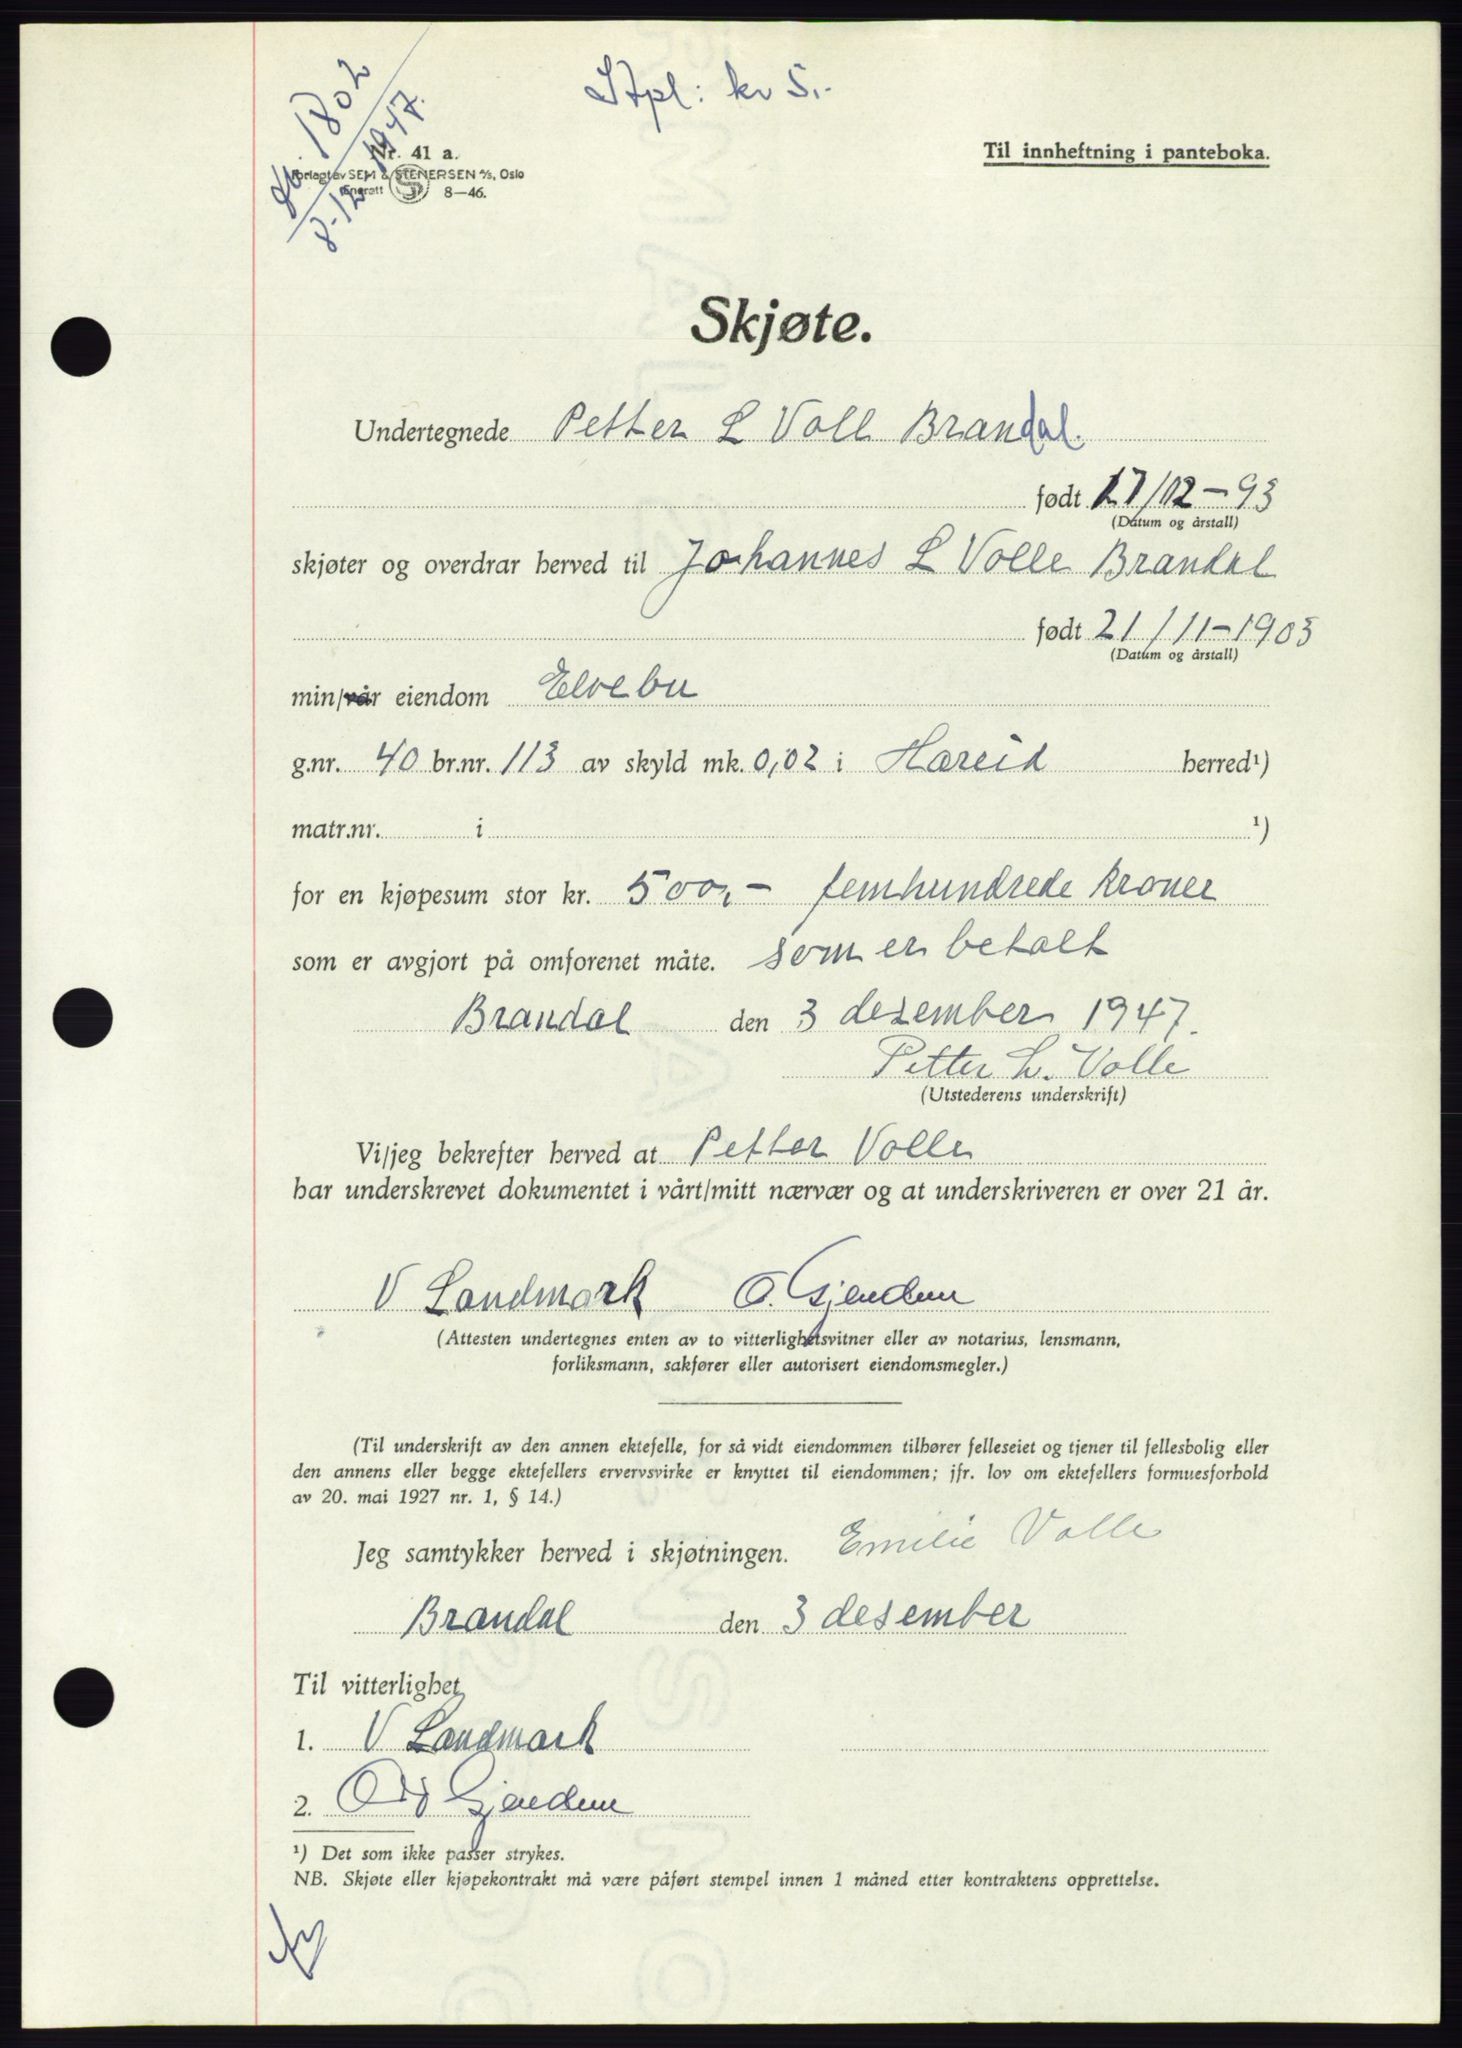 Stpl: kr 5.-
No. 1802
8-12-1947.
Nr. 41 a.
Forlagt av SEM & STENERSEN A/S, Oslo
Enerett S 8—46.
Til innheftning i panteboka.
Skjøte.
Undertegnede Petter L Voll Brandal.
født 17/02-93
(Datum og årstall)
skjøter og overdrar herved til Johannes L Volle Brandal
født 21/11-1903
(Datum og årstall)
min/vår eiendom Elvebu
g.nr. 40 br.nr. 113 av skyld mk. 0,02 i Hareid herred¹)
matr.nr. i ¹)
for en kjøpesum stor kr. 500,- femhundrede kroner
som er avgjort på omforenet måte. som er betalt
Brandal den 3 desember 1947.
Petter L. Volle
(Utstederens underskrift)
Vi/jeg bekrefter herved at Petter Volle
har underskrevet dokumentet i vårt/mitt nærvær og at underskriveren er over 21 år.
V Landmark O. Gjendem
(Attesten undertegnes enten av to vitterlighetsvitner eller av notarius, lensmann,
forliksmann, sakfører eller autorisert eiendomsmegler.)
(Til underskrift av den annen ektefelle, for så vidt eiendommen tilhører felleseiet og tjener til fellesbolig eller
den annens eller begge ektefellers ervervsvirke er knyttet til eiendommen; jfr. lov om ektefellers formuesforhold
av 20. mai 1927 nr. 1, § 14.)
Jeg samtykker herved i skjøtningen. Emilie Volle
Brandal den 3 desember
Til vitterlighet
1. V Landmark
2. Gjendem
¹) Det som ikke passer strykes.
NB. Skjøte eller kjøpekontrakt må være påført stempel innen 1 måned etter kontraktens opprettelse.